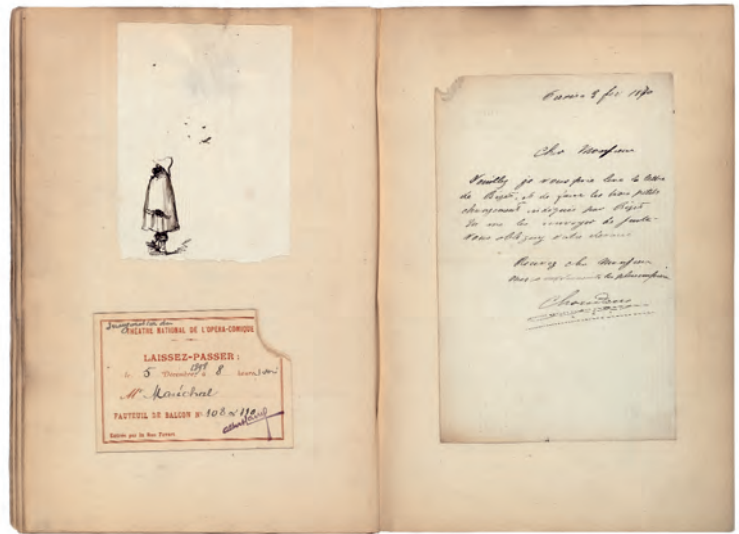 Inauguration du
THÉATRE NATIONAL DE L'OPERA-COMIQUE
LAISSEZ-PASSER :
le 5 Décembre 1898 à 8 heures
Mr Maréchal
FAUTEUIL DE BALCON No 108
Entrée par la Rue Favart
Paris 8
Cher Monsieur
Veuillez je vous prie lire la lettre
de Bizet, et de faire les trois petits
changement indiqués par Bizet
et me les renvoyer de suite
vous obligerez votre
Recevez cher Monsieur
mes
Choudens